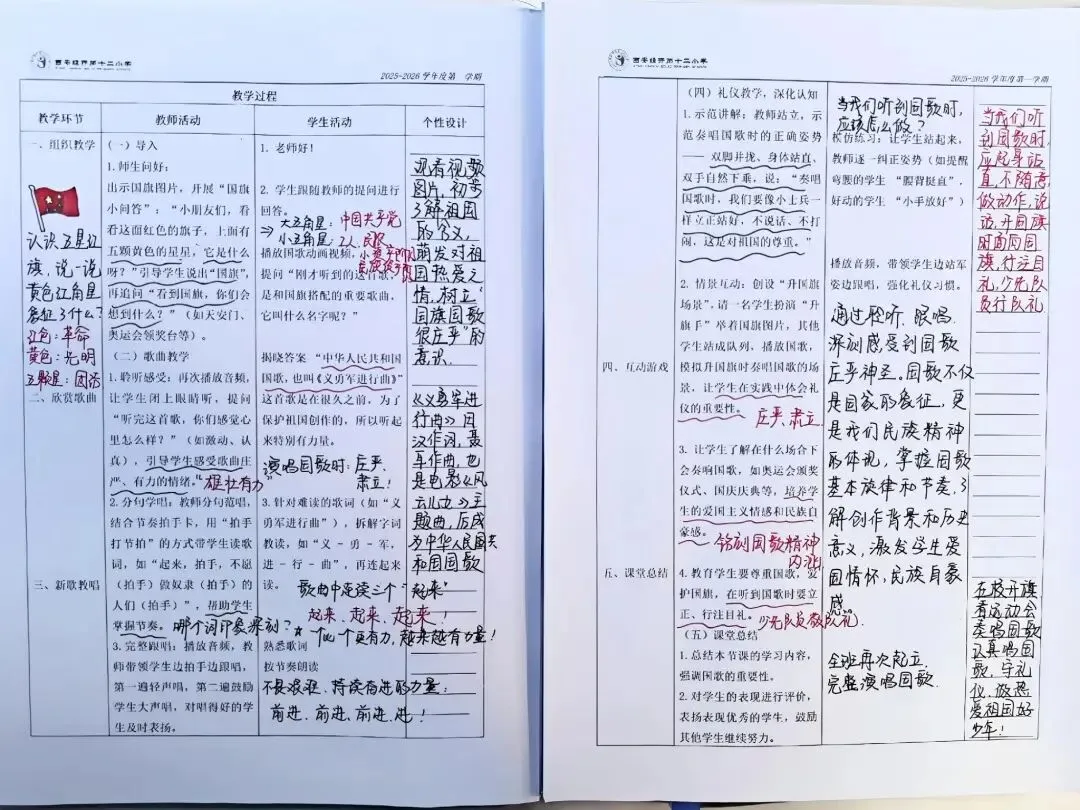 西安经开第十二小学
2025-2026 学年度第 学期
教学过程
教学环节
教师活动
学生活动
个性设计
一、组织教学
认识五星红
旗,说一说
黄色五角星
象征了什么?
红色:革命
黄色:光明
五颗星:团结
二、欣赏歌曲
三、新歌教唱
(一)导入
1.师生问好:
出示国旗图片,开展“国旗
小问答”:“小朋友们,看
看这面红色的旗子,上面有
五颗黄色的星星,它是什么
呀?”引导学生说出“国旗”,
再追问“看到国旗,你们会
想到什么?”(如天安门、
奥运会领奖台等)。
(二)歌曲教学
1.聆听感受:再次播放音频,
让学生闭上眼睛听,提问
“听完这首歌,你们感觉心
里怎么样?”(如激动、认
真),引导学生感受歌曲庄
严、有力的情绪。“雄壮有力”
2.分句学唱:教师分句范唱,
结合节奏拍手卡,用“拍手
打节拍”的方式带学生读歌
词,如“起来,拍手,不愿
(拍手)做奴隶(拍手)的
人们(拍手)”,帮助学生
掌握节奏。哪个词印象深刻?
3.完整跟唱:播放音频,教
师带领学生边拍手边跟唱,
第一遍轻声唱,第二遍鼓励
学生大声唱,对唱得好的学
生及时表扬。
1.老师好!
2.学生跟随教师的提问进行
回答。
⇒ 大五角星:中国共产党
小五角星:人民
播放国歌动画视频,
提问“刚才听到的这首歌,
是和国旗搭配的重要歌曲,
它叫什么名字呢?”
揭晓答案“中华人民共和国
国歌,也叫《义勇军进行曲》”
这首歌是在很久之前,为了
保护祖国创作的,所以听起
来特别有力量。
演唱国歌时:庄严、
肃立!
3.针对难读的歌词(如“义
勇军进行曲”),拆解字词
教读,如“义-勇-军,
进-行-曲”,再连起来
读。
歌曲中连续三个“起来”
起来、起来、起来!
★一个比一个更有力,越来越有力量!
熟悉歌词
按节奏朗读
不畏艰难、持续奋进的力量:
前进、前进、前进、进!
观看视频
图片,初步
了解祖国
的含义,
萌发对祖
国热爱之
情,树立“
国旗国歌
很庄严”的
意识.
《义勇军进
行曲》田
汉作词,聂
耳作曲,也
是电影《风
云儿女》主
题曲,后成
为中华人民共
和国国歌
西安经开第十二小学
2025-2026 学年度第一学期
四、互动游戏
五、课堂总结
(四)礼仪教学,深化认知
1.示范讲解:教师站立,示
范奏唱国歌时的正确姿势
——双脚并拢、身体站直、
双手自然下垂,说:“奏唱
国歌时,我们要像小士兵一
样立正站好,不说话、不打
闹,这是对祖国的尊重。”
2.情景互动:创设“升国旗
场景”,请一名学生扮演“升
旗手”举着国旗图片,其他
学生站成队列,播放国歌,
模拟升国旗时奏唱国歌的场
景,让学生在实践中体会礼
仪的重要性。 庄严、肃立
3.让学生了解在什么场合下
会奏响国歌,如奥运会颁奖
仪式、国庆庆典等,培养学
生的爱国主义情感和民族自
豪感。 铭刻国歌精神
内涵
4.教育学生要尊重国歌,爱
护国旗,在听到国歌时要立
正、行注目礼。少先队员敬队礼.
(五)课堂总结
1.总结本节课的学习内容,
强调国歌的重要性。
2.对学生的表现进行评价,
表扬表现优秀的学生,鼓励
其他学生继续努力。
当我们听到国歌时,
应该怎么做?
模仿练习:让学生站起来,
教师逐一纠正姿势(如提醒
弯腰的学生“腰背挺直”,
好动的学生“小手放好”)
播放音频,带领学生边站军
姿边跟唱,强化礼仪习惯。
通过聆听、跟唱,
深刻感受到国歌
庄严神圣。国歌不仅
是国家的象征,更
是我们民族精神
的体现,掌握国歌
基本旋律和节奏,了
解创作背景和历史
意义,激发学生爱
国情怀,民族自豪
感
全班再次起立,
完整演唱国歌.
当我们听
到国歌时,
应起身站
直,不随意
做动作,说
话,升国旗
时面向国
旗,行注目
礼,少先队
员行队礼
在校升旗
看运动会
奏唱国歌
认真唱国
歌,守礼
仪,做热
爱祖国好
少年!